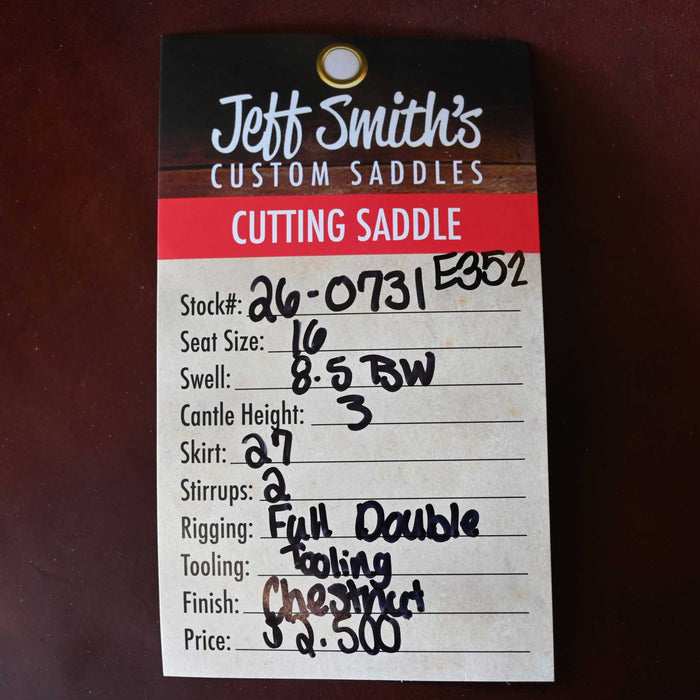 Jeff Smith's
CUSTOM SADDLES
CUTTING SADDLE
Stock#: 26-0731 E352
Seat Size: 16
Swell: 8.5 BW
Cantle Height: 3
Skirt: 27
Stirrups: 2
Rigging: Full Double
Tooling: Tooling
Finish: Chestnut
Price: $2.500